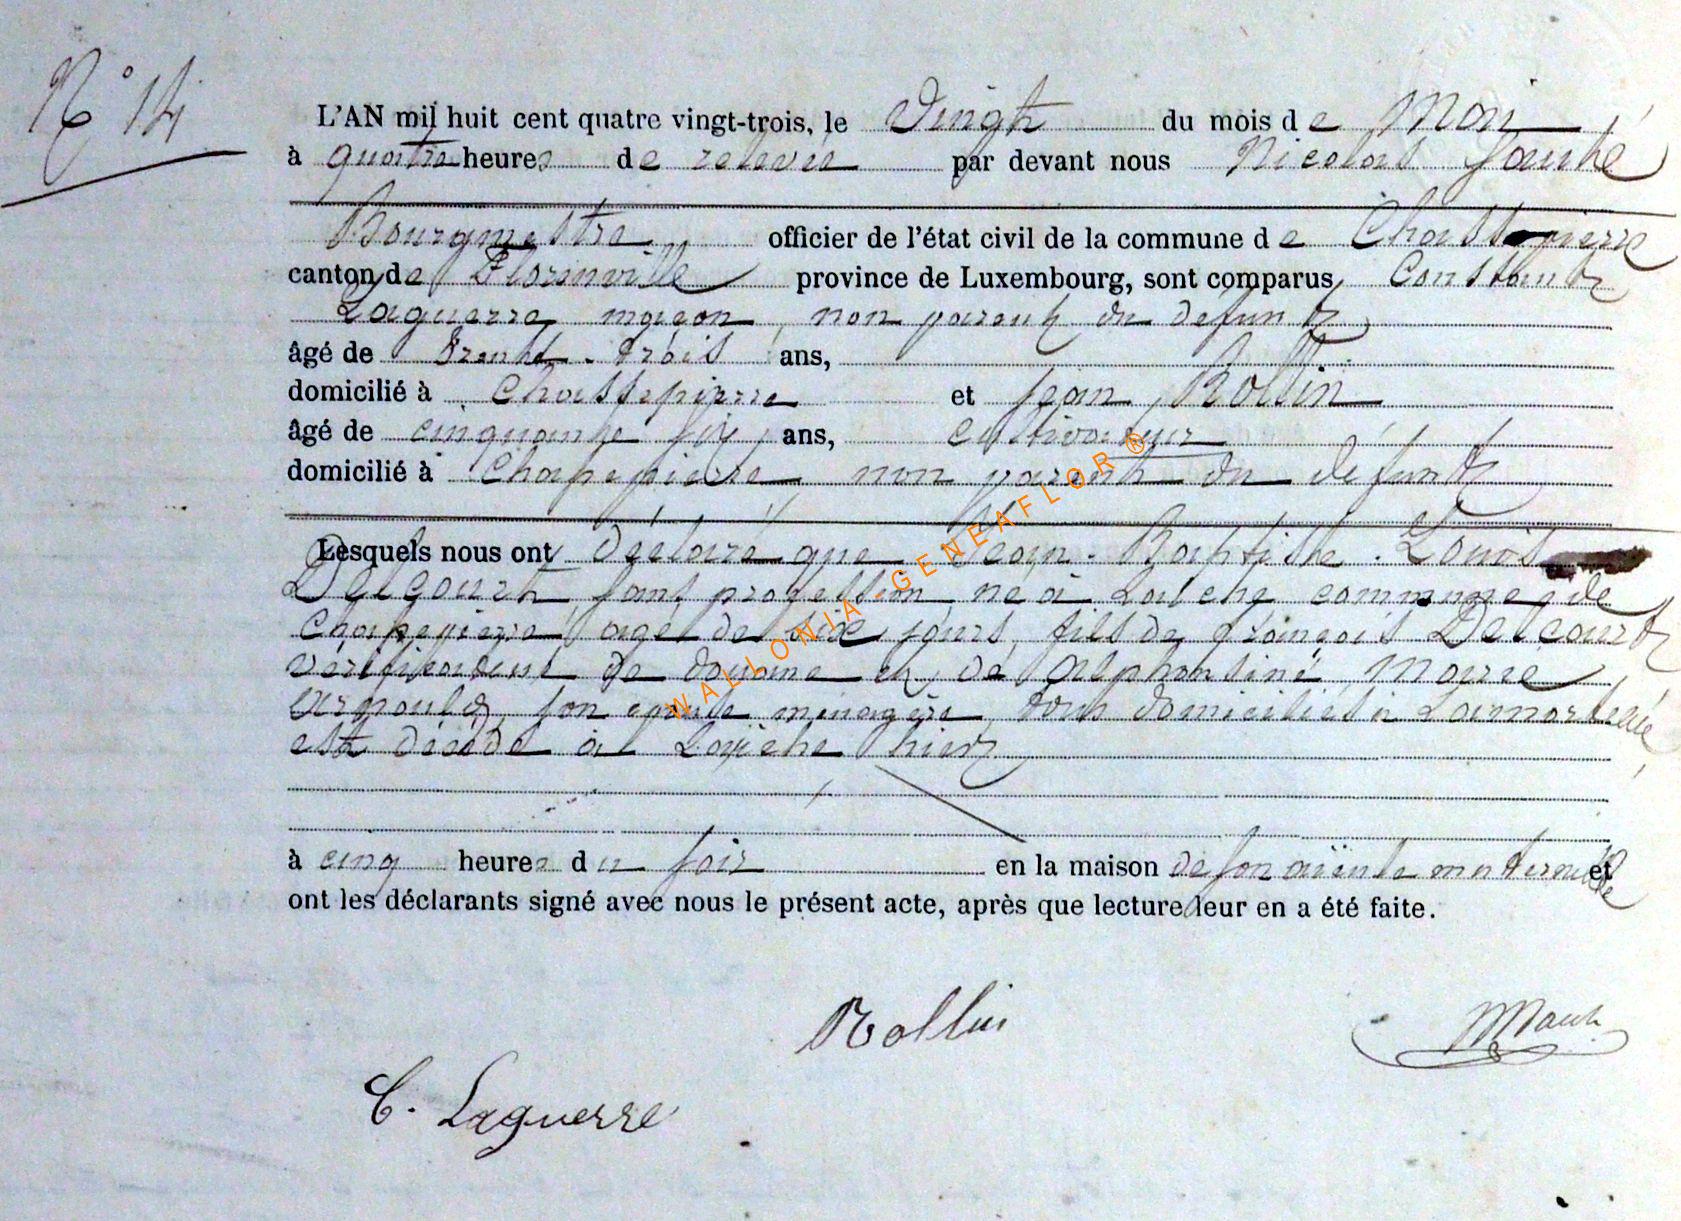 N° 14
L'AN mil huit cent quatre vingt-trois, le vingt du mois de Mai
à quatre heures de relevée par devant nous Nicolas
Bourgmestre officier de l'état civil de la commune de Chassepierre
canton de Florenville province de Luxembourg, sont comparus Constant
Laguerre maçon, non parent du défunt
âgé de Trente-trois ans,
domicilié à Chassepierre et Jean Rollin
âgé de cinquante six ans, cultivateur
domicilié à Chassepierre non parent du défunt
Lesquels nous ont déclaré que Jean-Baptiste Louis
Delcourt, sans profession, né à Laiche commune de
Chassepierre, agé de dix jours, fils de François Delcourt
vérificateur de douane et de Alphonsine Marie
Arnould, son épouse ménagère, tous domiciliés à Lamorteau
est décédé à Laiche hier
à cinq heures du soir en la maison de son aïeule maternelle et
ont les déclarants signé avec nous le présent acte, après que lecture leur en a été faite.
Rollin
C. Laguerre
WALLONIA GENEAFLOR®